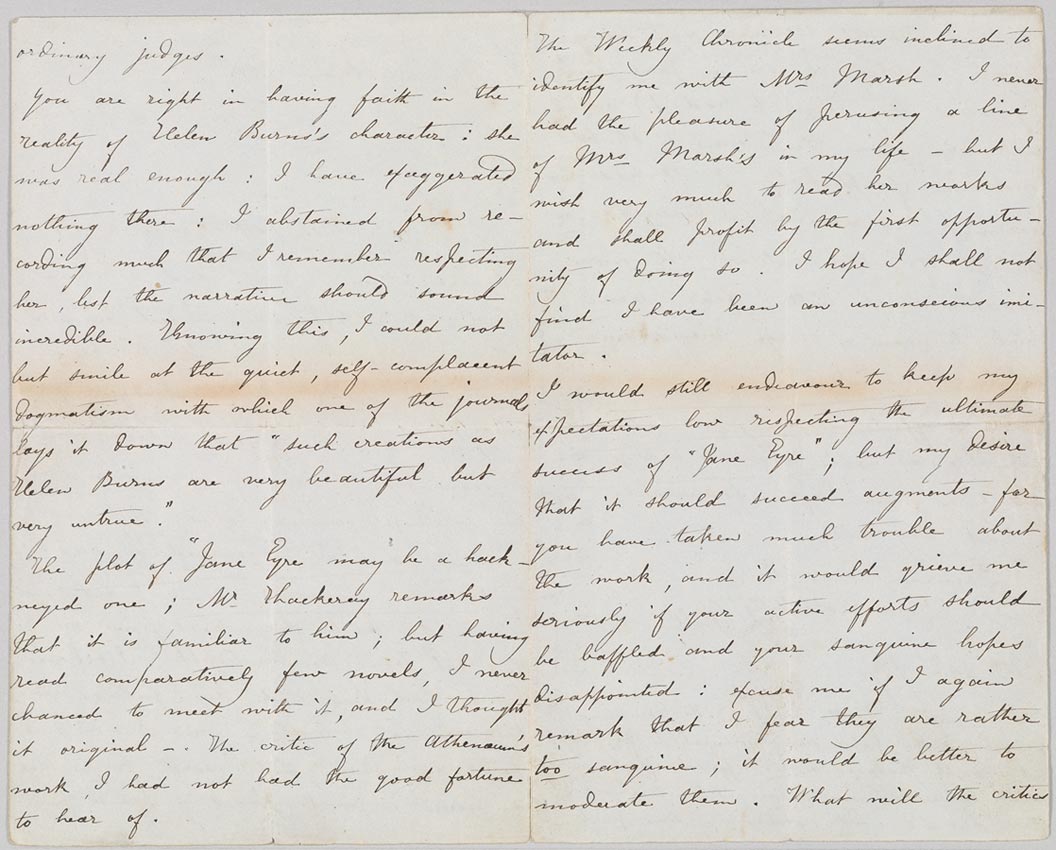 ordinary judges.
You are right in having faith in the
reality of Helen Burns's character: she
was real enough: I have exaggerated
nothing there: I abstained from re-
cording much that I remember respecting
her, lest the narrative should sound
incredible. Knowing this, I could not
but smile at the quiet, self-complacent
dogmatism with which one of the journals
lays it down that "such creations as
Helen Burns are very beautiful but
very untrue."
The plot of "Jane Eyre may be a hack-
neyed one; Mr Thackeray remarks
that it is familiar to him; but having
read comparatively few novels, I never
chanced to meet with it, and I thought
it original -. The critic of the Athenaeum's
work, I had not had the good fortune
to hear of.
The Weekly Chronicle seems inclined to
identify me with Mrs Marsh. I never
had the pleasure of perusing a line
of Mrs Marsh's in my life - but I
wish very much to read her works
and shall profit by the first opportu-
nity of doing so. I hope I shall not
find I have been an unconscious imi-
tator.
I would still endeavour to keep my
expectations low respecting the ultimate
success of "Jane Eyre"; but my desire
that it should succeed augments - for
you have taken much trouble about
the work, and it would grieve me
seriously if your active efforts should
be baffled and your sanguine hopes
disappointed: excuse me if I again
remark that I fear they are rather
too sanguine; it would be better to
moderate them. What will the critics